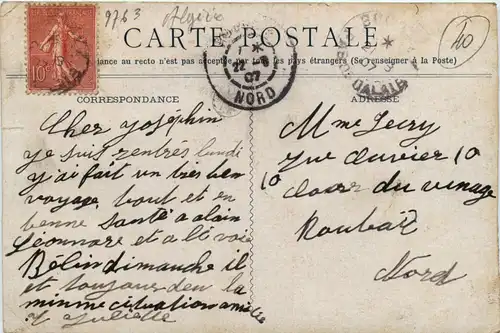 9763
Algérie
40
CARTE POSTALE
ance au recto n'est pas acceptée par tous les pays étrangers (Se renseigner à la Poste)
10
22
07
NORD
CALAIS
CORRESPONDANCE
ADRESSE
Cher Josephin
Je suis rentrés lundi
J'ai fait un tres bon
voyage bout et en
bonne Santé a alain
Léonnare et a lé voie
Bélin dimanche il
et toujour den la
minme cituation
Juliette
Mme Lecry
10
10 Cour du vinage
Roubaix
Nord